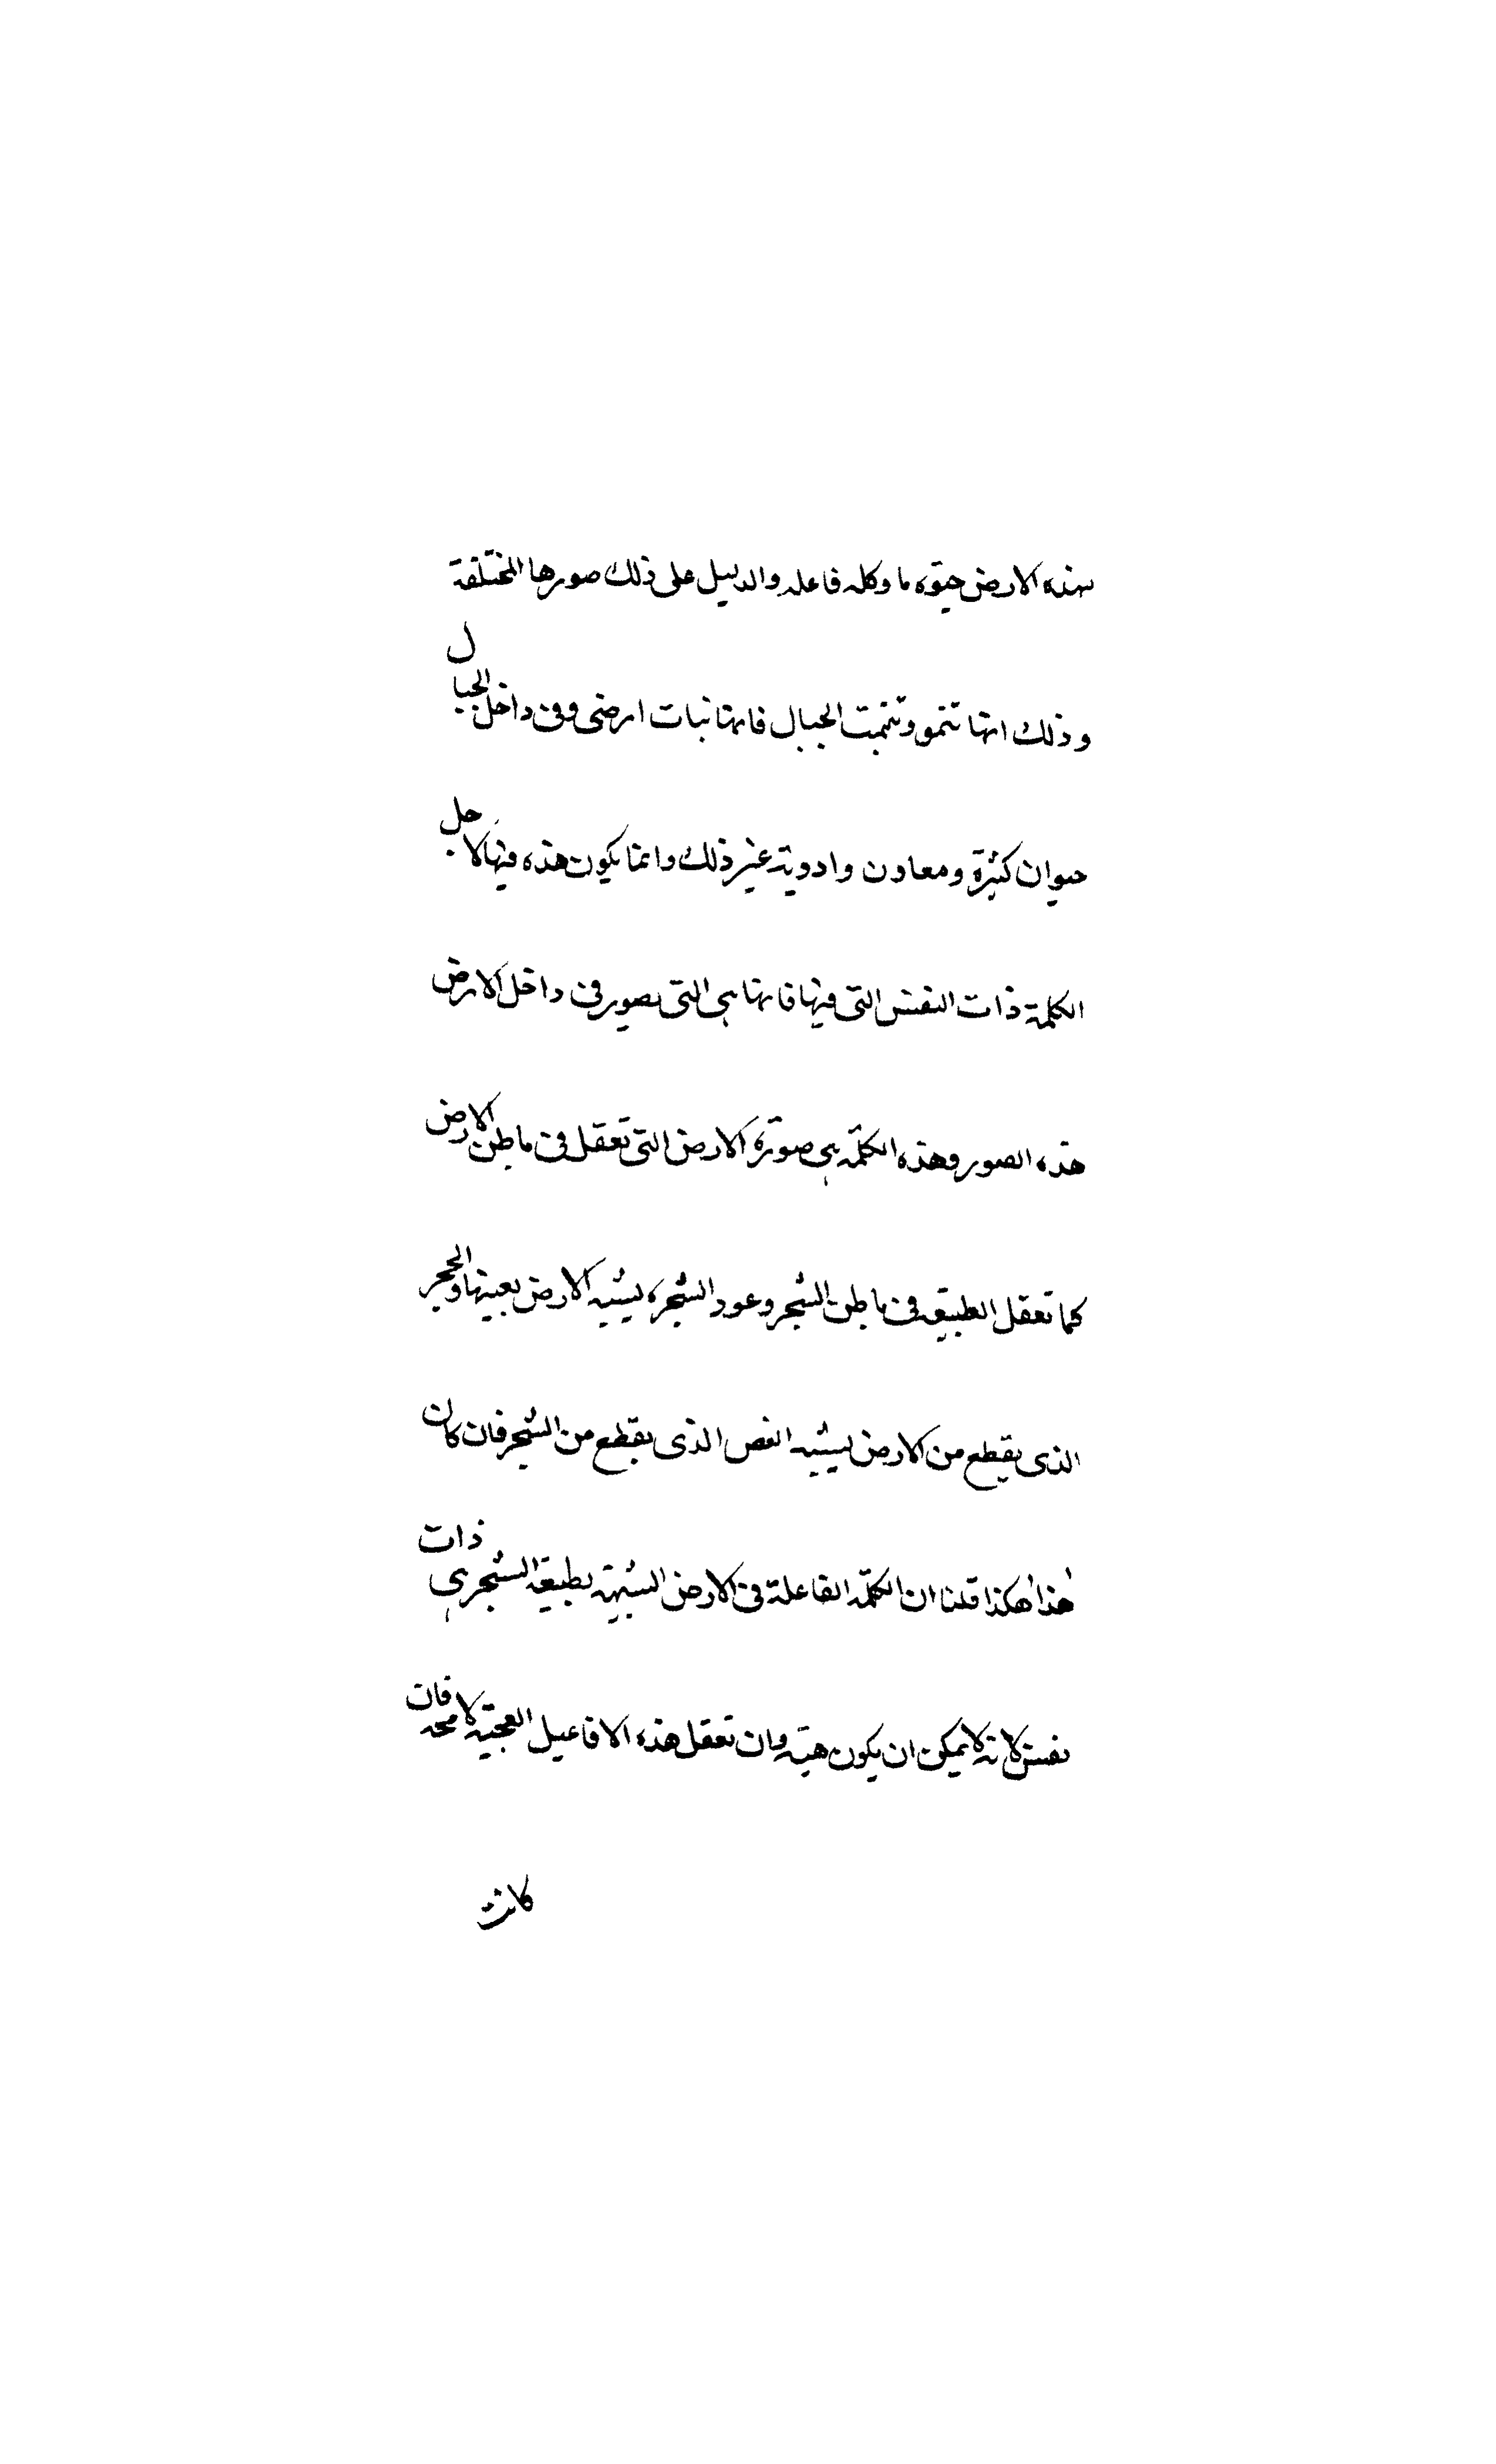 سهذه الارض حيوه ما وكله فاعله والدليل على ذلك صورها المختلفة
وذلك انها تنمو وتنبت الجبال فانها نبات ارضى وفى داخل الجبال
حيوان كثيرة ومعادن وادوية غير ذلك وانما يكون هذه فيها لاجل
الكلمة ذات النفس التى فيها فانها هى التى يصور فى داخل الارض
هذه الصور وهذه الكلمة هى صورة الارض التى تعقل فى باطن الارض
كما تعقل الطبيعه فى باطن الشجر وعود الشجره يشبه الارض بعينها والحجر
الذى يقطع من الارض يشبه الغصن الذى يقطع من الشجر فان كان
هذا هكذا قلنا ان الكلمة الفاعلة فى الارض الشبيهة بطبيعة الشجر هى ذات
نفس لانه لا يمكن ان يكون ميته وان تعقل هذه الافاعيل العجيبة لا محه فان
كانت